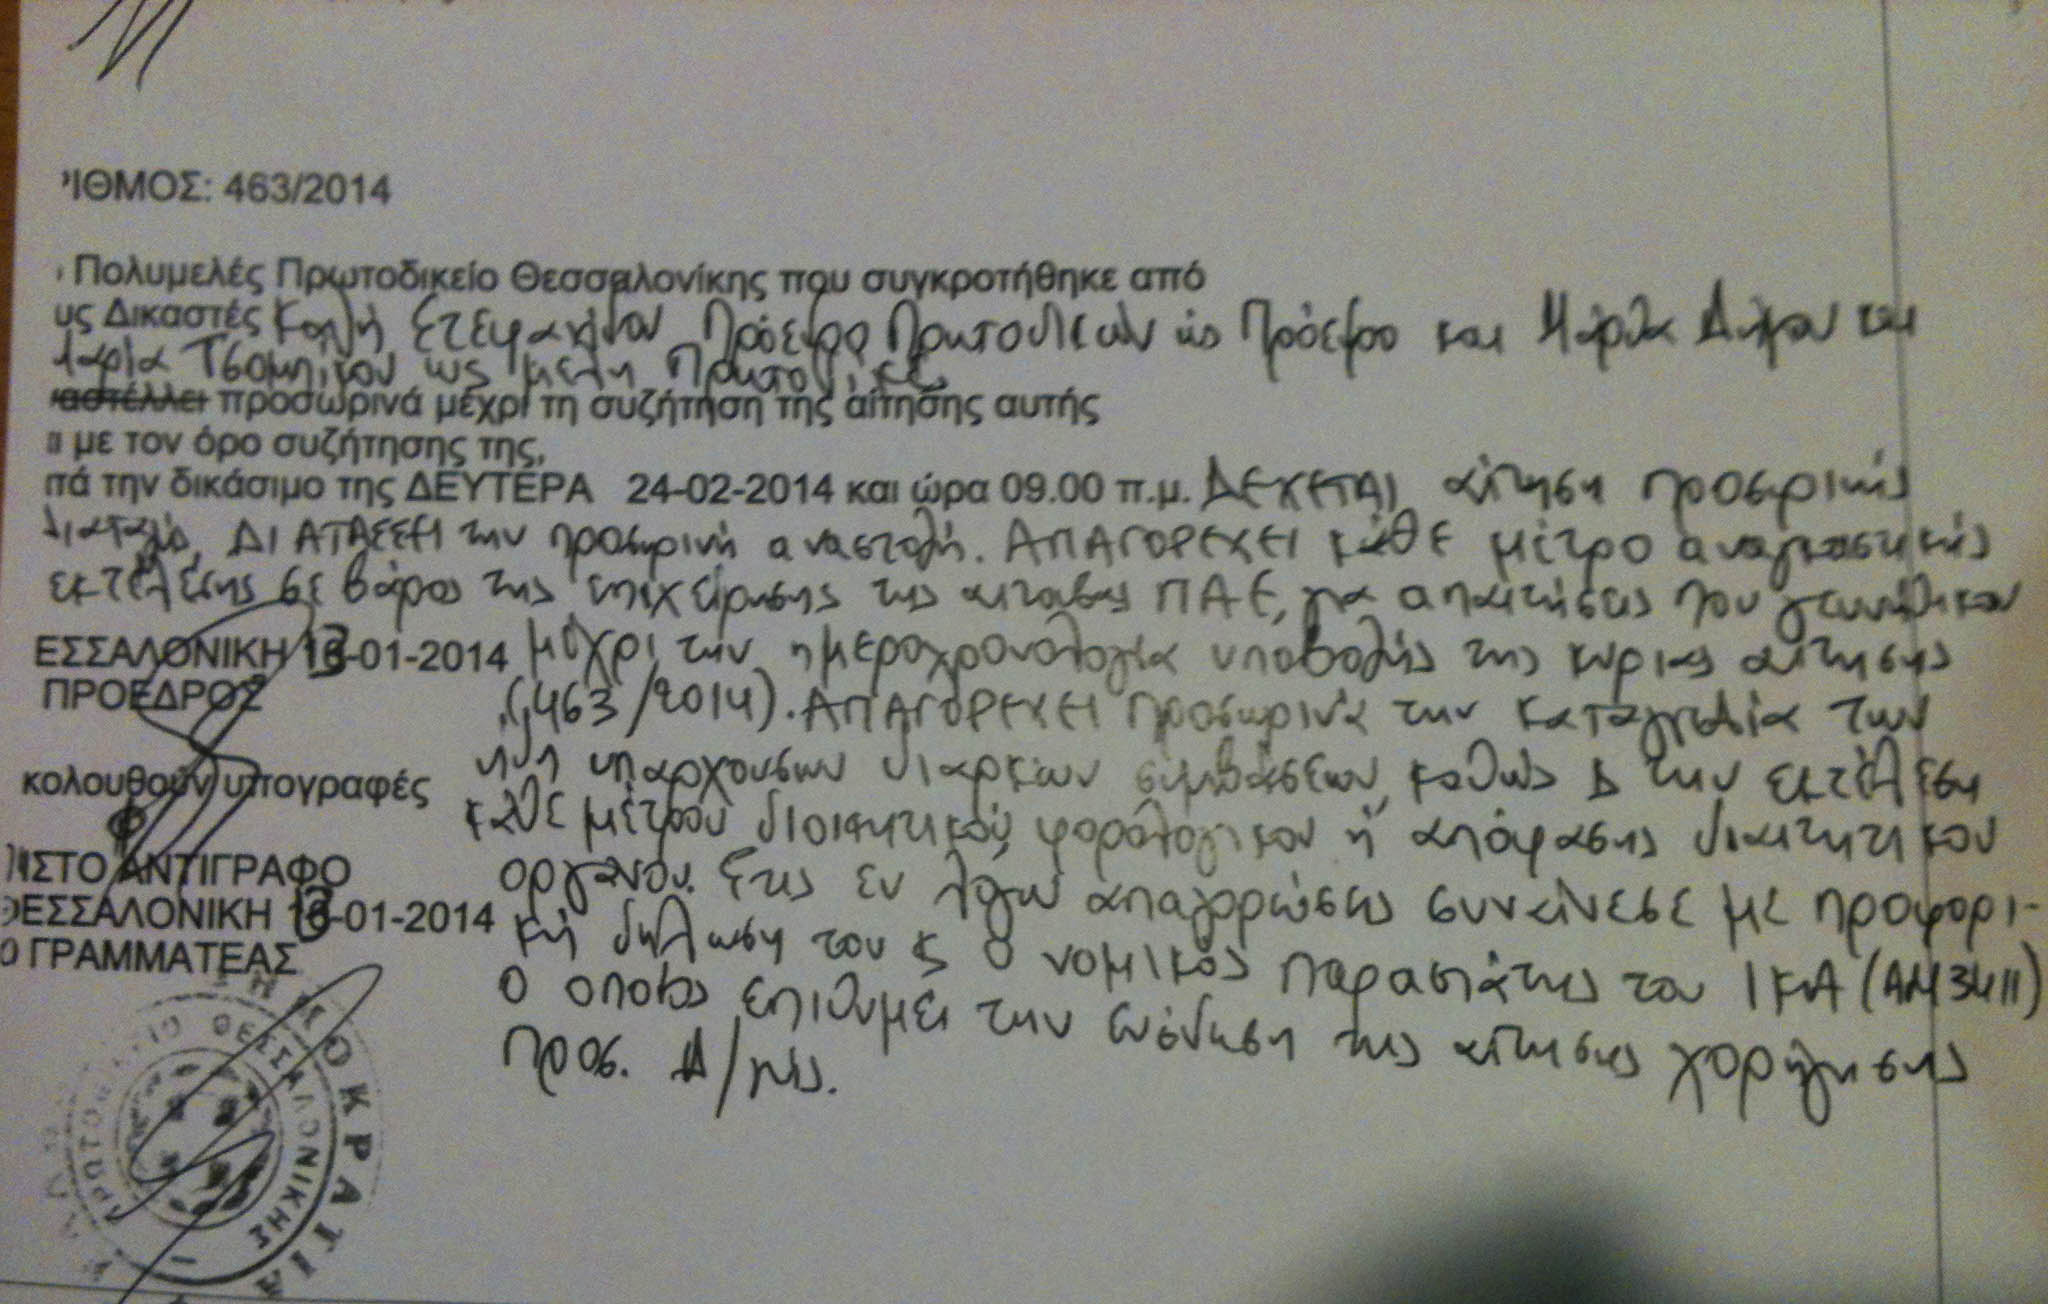 ΙΘΜΟΣ: 463/2014
Πολυμελές Πρωτοδικείο Θεσσαλονίκης που συγκροτήθηκε από
υς Δικαστές Πρόεδρο Πρωτοδικών ως Πρόεδρο και
αρία ως μέλη
αστέλλει προσωρινά μέχρι τη συζήτηση της αίτησης αυτής
ι με τον όρο συζήτησης της,
τά την δικάσιμο της ΔΕΥΤΕΡΑ 24-02-2014 και ώρα 09.00 π.μ. ΔΕΧΕΤΑΙ αίτηση προσωρινής
διαταγής, ΔΙΑΤΑΣΣΕΙ την προσωρινή αναστολή. ΑΠΑΓΟΡΕΥΕΙ κάθε μέτρο αναγκαστικής
εκτέλεσης σε βάρος της επιχείρησης της αιτούσας ΠΑΕ, για απαιτήσεις που γεννήθηκαν
ΕΣΣΑΛΟΝΙΚΗ 13-01-2014 μέχρι την ημεροχρονολογία υποβολής της κύριας αίτησης
ΠΡΟΕΔΡΟΣ
(463/2014). ΑΠΑΓΟΡΕΥΕΙ προσωρινά την καταγγελία των
ήδη υπαρχουσών διαρκών συμβάσεων, καθώς την εκτέλεση
κολουθούν υπογραφές
κάθε μέτρου διοικητικού, φορολογικού ή απόφασης διαιτητικού
ΙΣΤΟ ΑΝΤΙΓΡΑΦΟ
οργάνου. Στις εν λόγω απαγορεύσεις συναίνεσε με προφορι-
ΘΕΣΣΑΛΟΝΙΚΗ 13-01-2014
κή δήλωση του ο νομικός παραστάτης του ΙΚΑ (ΑΜ 3411)
Ο ΓΡΑΜΜΑΤΕΑΣ
ο οποίος επιθυμεί την της αίτησης χορήγησης
προσ. Δ/γής.
ΔΗΜΟΚΡΑΤΙΑ
ΠΡΩΤΟΔΙΚΕΙΟ ΘΕΣΣΑΛΟΝΙΚΗΣ